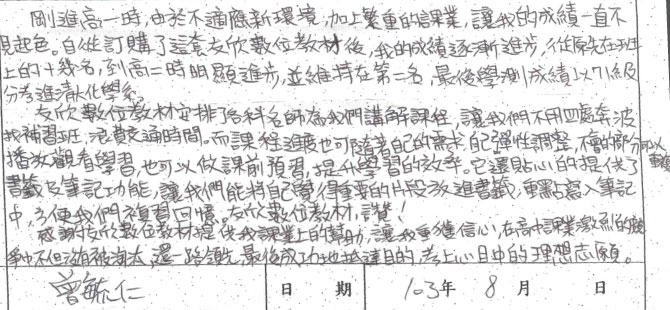 剛進高一時,由於不適應新環境,加上繁重的課業,讓我的成績一直不
見起色。自從訂購了這套友欣數位教材後,我的成績逐漸進步,從原先在班
上的十幾名,到高二時明顯進步,並維持在第二名,最後學測成績以71級
分考進清大化學系。
友欣數位教材安排了各科名師為我們講解課程,讓我們不用四處奔波
找補習班,浪費交通時間。而課程進度也可隨著自己的需求自己彈性調整,不會的部分可以重複
播放觀看學習,也可以做課前預習,提升學習的效率。它還貼心的提供了
書籤及筆記功能,讓我們能將自己覺得重要的片段放進書籤,重點寫入筆記
中,方便我們複習回憶。友欣數位教材,讚!
感謝友欣數位教材提供我課業上的幫助,讓我重獲信心,在高中課業激烈的競
爭中不但沒有被淘汰,還一路領先,最後成功地抵達目的,考上心目中的理想志願。
曾毓仁 日 期 103年 8 月 日